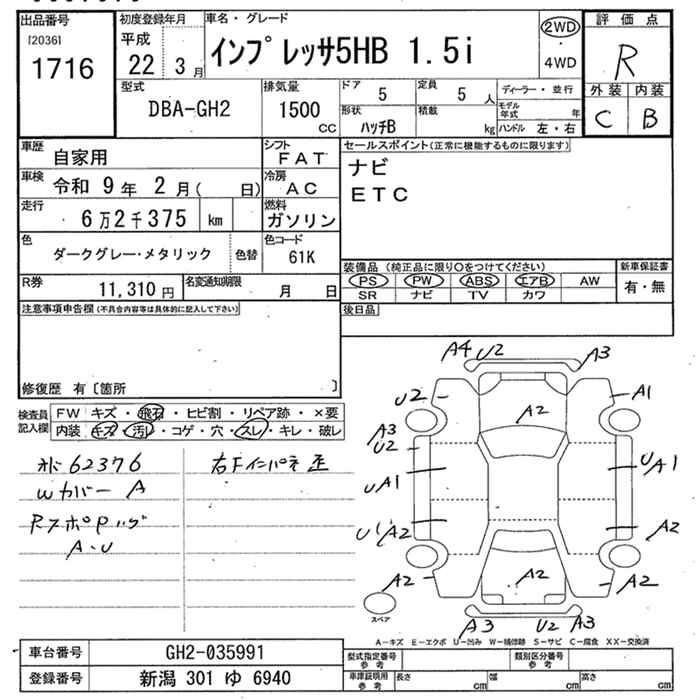 出品番号 初度登録年月 車名・グレード 評価点
[2036]
1716
平成 22 3月
インプレッサ5HB 1.5i
2WD
・
4WD
R
型式 排気量 ドア 定員 ディーラー・並行 外装 内装
DBA-GH2 1500 CC 5 5 人 モデル年式 年 C B
形状 積載 ハッチB kg ハンドル 左・右
車歴 自家用 シフト FAT セールスポイント(正常に機能するものに限ります)
車検 令和 9年 2月( 日) 冷房 AC ナビ
走行 6万2千375 km 燃料 ガソリン ETC
色 ダークグレー・メタリック 色替 色コード 61K
装備品 (純正品に限り○をつけてください) 新車保証書
PS PW ABS エアB AW 有・無
SR ナビ TV カワ
R券 11,310円 名変通知期限 月 日
注意事項申告欄(不具合内容等は具体的に記入して下さい) 後日品
修復歴 有〔箇所 〕
検査員記入欄 FW キズ・飛石・ヒビ割・リペア跡・×要
内装 キズ・汚レ・コゲ・穴・スレ・キレ・破レ
62376
Wカバー A
A・U
右Fインパネ
A4 U2 A3
U2 A2 A1
A3
U2
UA1 UA1
U1 A2 A2
A2 A2 A2
スペア
A3 U2 A3
A-キズ E-エクボ U-凹み W-補修跡 S-サビ C-腐食 XX-交換済
車台番号 GH2-035991 型式指定番号 参考 類別区分番号 参考
登録番号 新潟 301 ゆ 6940 車庫証明用 参考 長さ cm 幅 cm 高さ cm